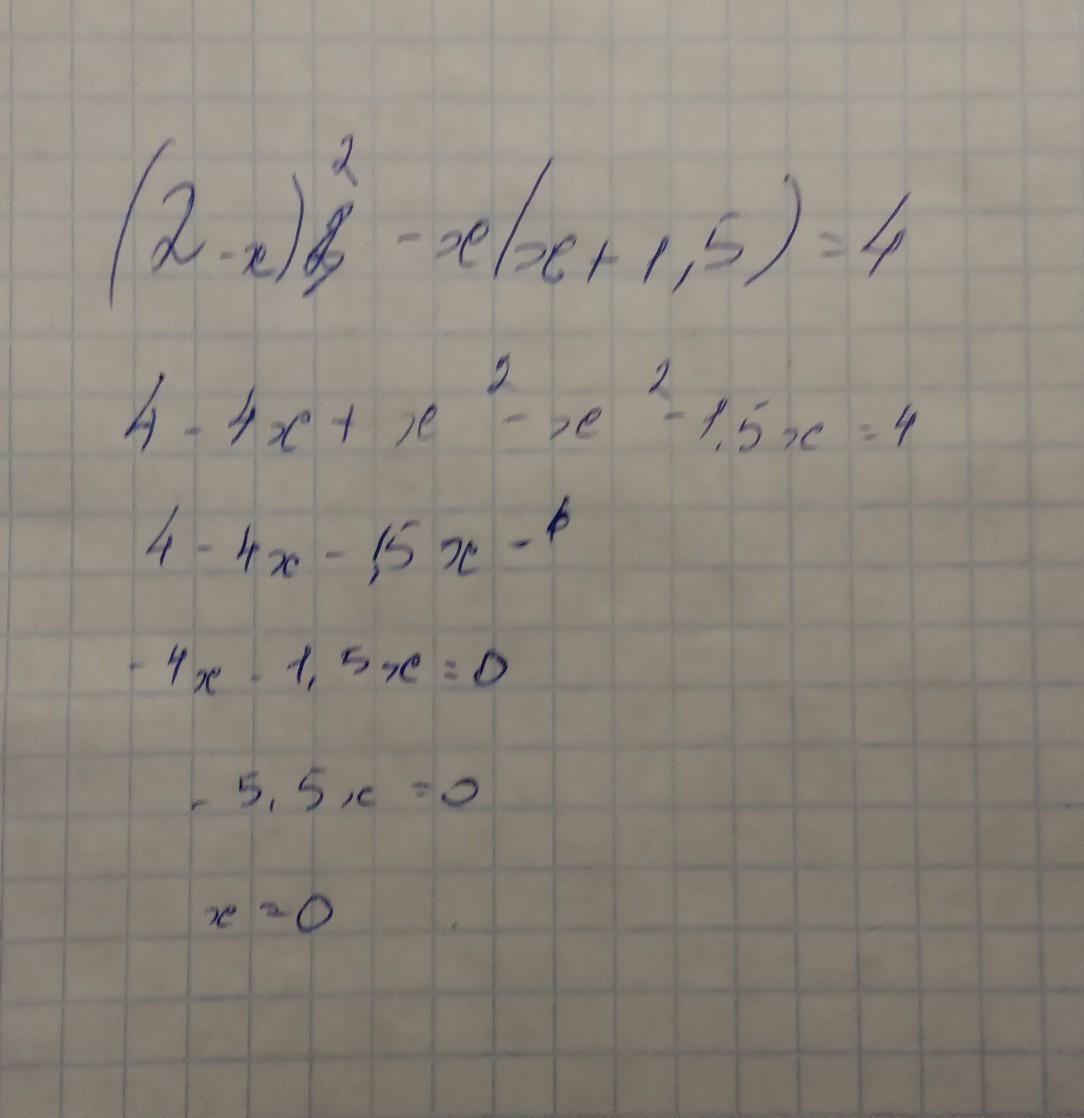 (2-x)² -x(x+1,5)=4
4-4x+x²-x²-1,5x=4
4-4x-1,5x-
-4x-1,5x=0
-5,5x=0
x=0